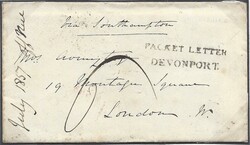 Via Southampton
PACKET LETTER
DEVONPORT.
Mrs
19 Montague Square
London W.
July 1857